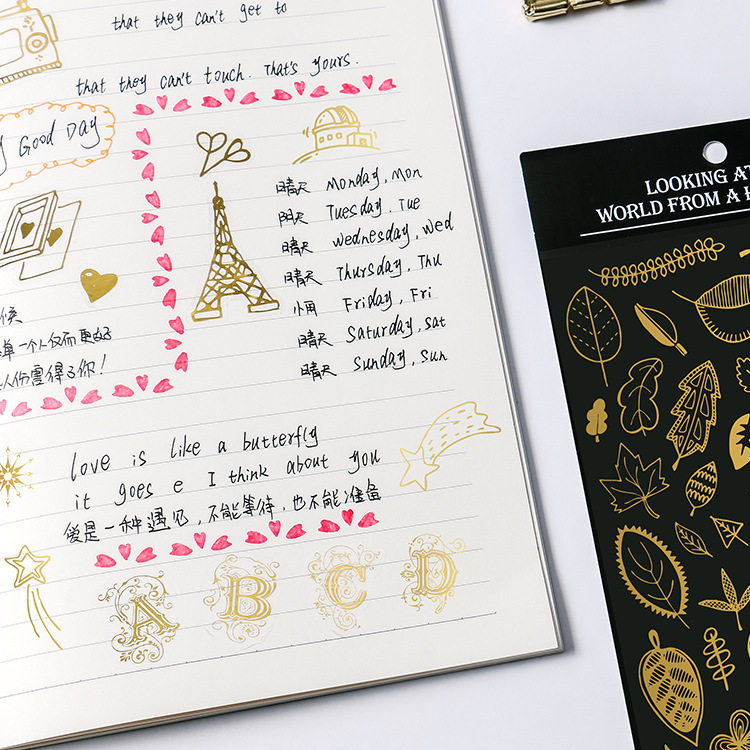 that they can't get to
that they can't touch. That's yours.
Good Day
晴天 Monday, Mon
阳天 Tuesday, Tue
晴天 Wednesday, Wed
晴天 Thursday, Thu
小雨 Friday, Fri
晴天 Saturday, Sat
晴天 Sunday, Sun
候
单一个人反而更好
人伤害得了你!
love is like a butterfly
it goes e I think about you
爱是一种遇见,不能等待,也不能准备
A B C D
LOOKING AT
WORLD FROM A